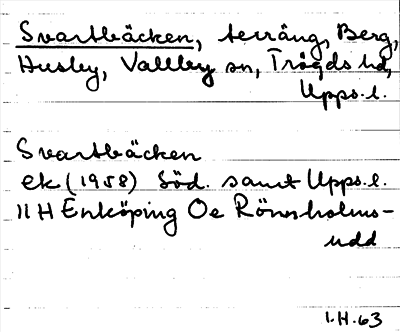 Svartbäcken, terräng, Berg,
Husby, Vallby sn, Trögds hd,
Upps. l.
Svartbäcken
ek (1958) Söd. samt Upps. l.
11 H Enköping Oe Rönnholms-
udd
1.H.63